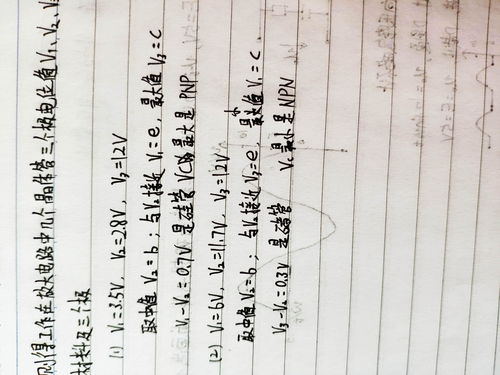 测得工作在放大电路中几个晶体管三个极电位值V₁、V₂、V₃
材料及三个极
(1) V₁=3.5V, V₂=2.8V, V₃=12V
取中值 V₂=b; 与V₂接近 V₁=e, 最大值 V₃=C
V₁-V₂=0.7V 是硅管 VC最大是PNP
(2) V₁=6V, V₂=11.7V, V₃=12V
取中值 V₂=b; 与V₂接近 V₃=e, 最小值 V₁=C
V₃-V₂=0.3V 是硅管 Vc最小是NPN